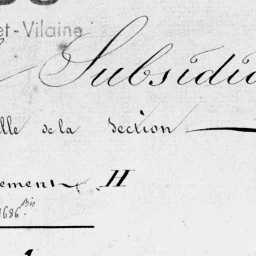 et-Vilaine
Subsidia
lle de la Section
ement H
1686 bis